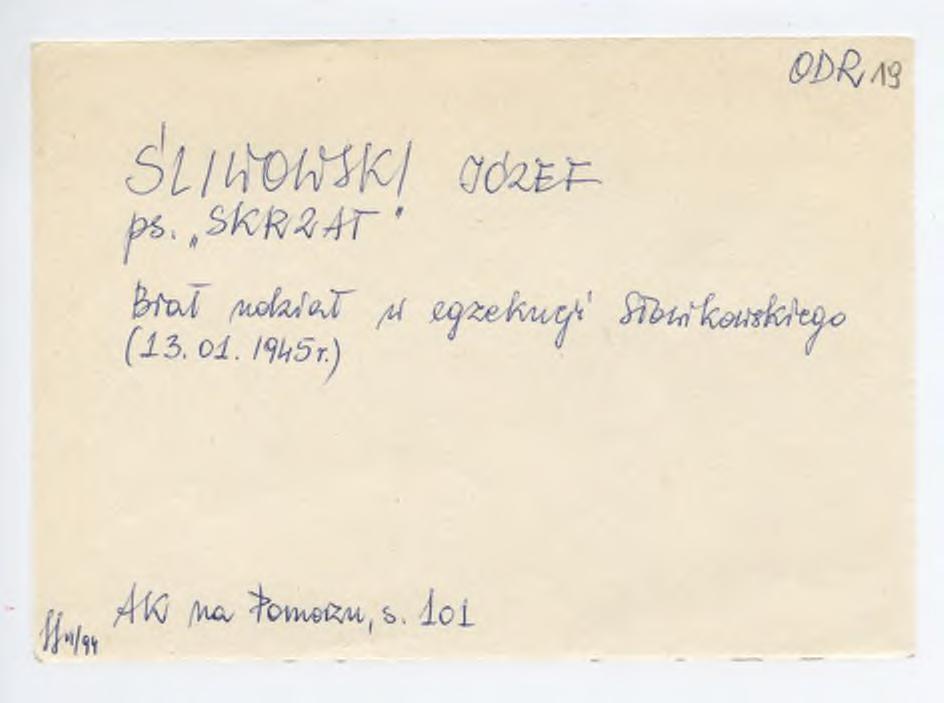 ODR 19
ŚLIWOWSKI JÓZEF
ps. „SKRZAT"
Brał udział w egzekucji Słowikowskiego
(13.01.1945r.)
AK na Pomorzu, s. 101
/94